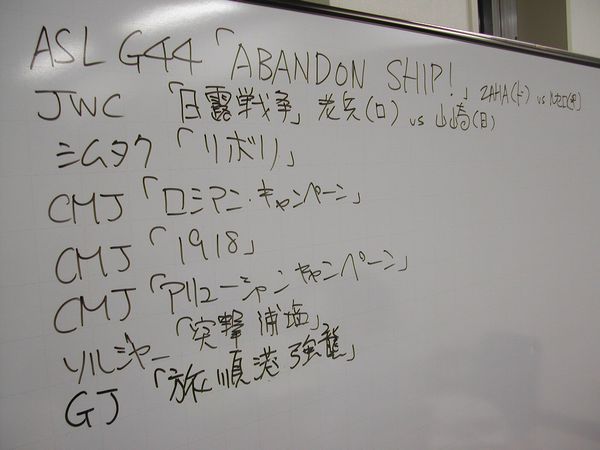 ASL G44「ABANDON SHIP!」 ZAHA(ド) vs
JWC 「日露戦争」 老兵(ロ) vs 山崎(日)
シムタク 「リボリ」
CMJ 「ロシアン・キャンペーン」
CMJ 「1918」
CMJ 「アリューシャンキャンペーン」
ソルジャー 「突撃浦塩」
GJ 「旅順港強襲」